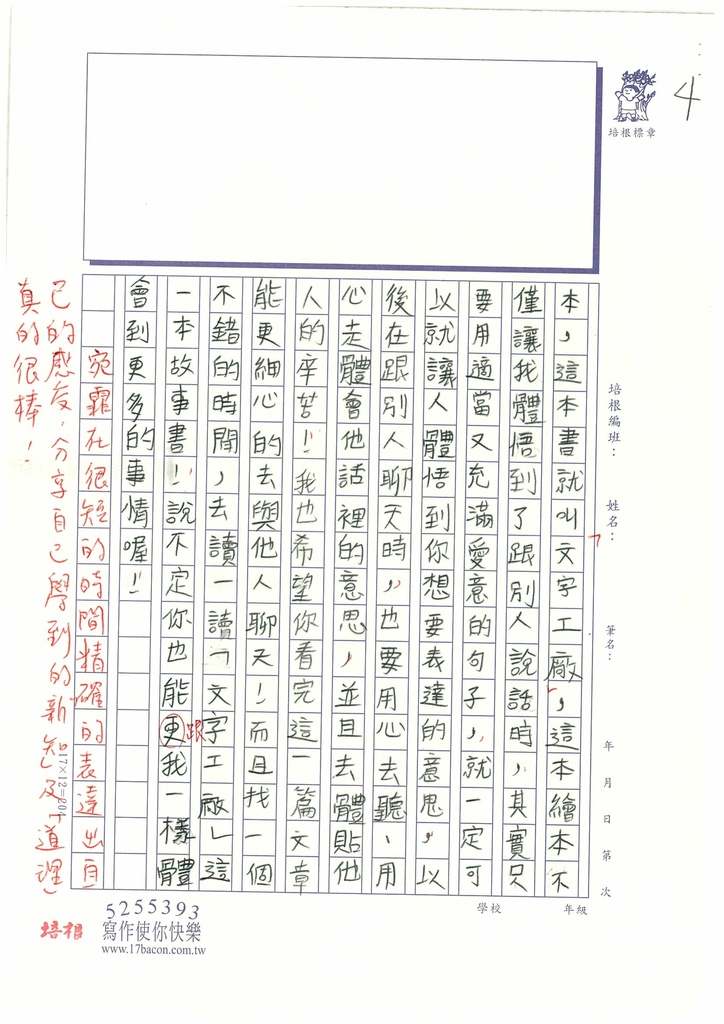 4
培根標章
培根編班：
姓名：
筆名：
年 月 日 第 次
學校
年級
本，這本書就叫文字工廠，這本繪本不
僅讓我體悟到了跟別人說話時，其實只
要用適當又充滿愛意的句子，就一定可
以就讓人體悟到你想要表達的意思，以
後在跟別人聊天時，也要用心去聽、用
心走體會他話裡的意思，並且去體貼他
人的辛苦！我也希望你看完這一篇文章
能更細心的去與他人聊天！而且找一個
不錯的時間，去讀一讀「文字工廠」這
一本故事書！說不定你也能更我一樣體
跟
會到更多的事情喔！
宛霏在很短的時間精確的表達出自
己的感友，分享自己學到的新知及「道理」
真的很棒！
17×12=204
5255393
培根 寫作使你快樂
www.17bacon.com.tw